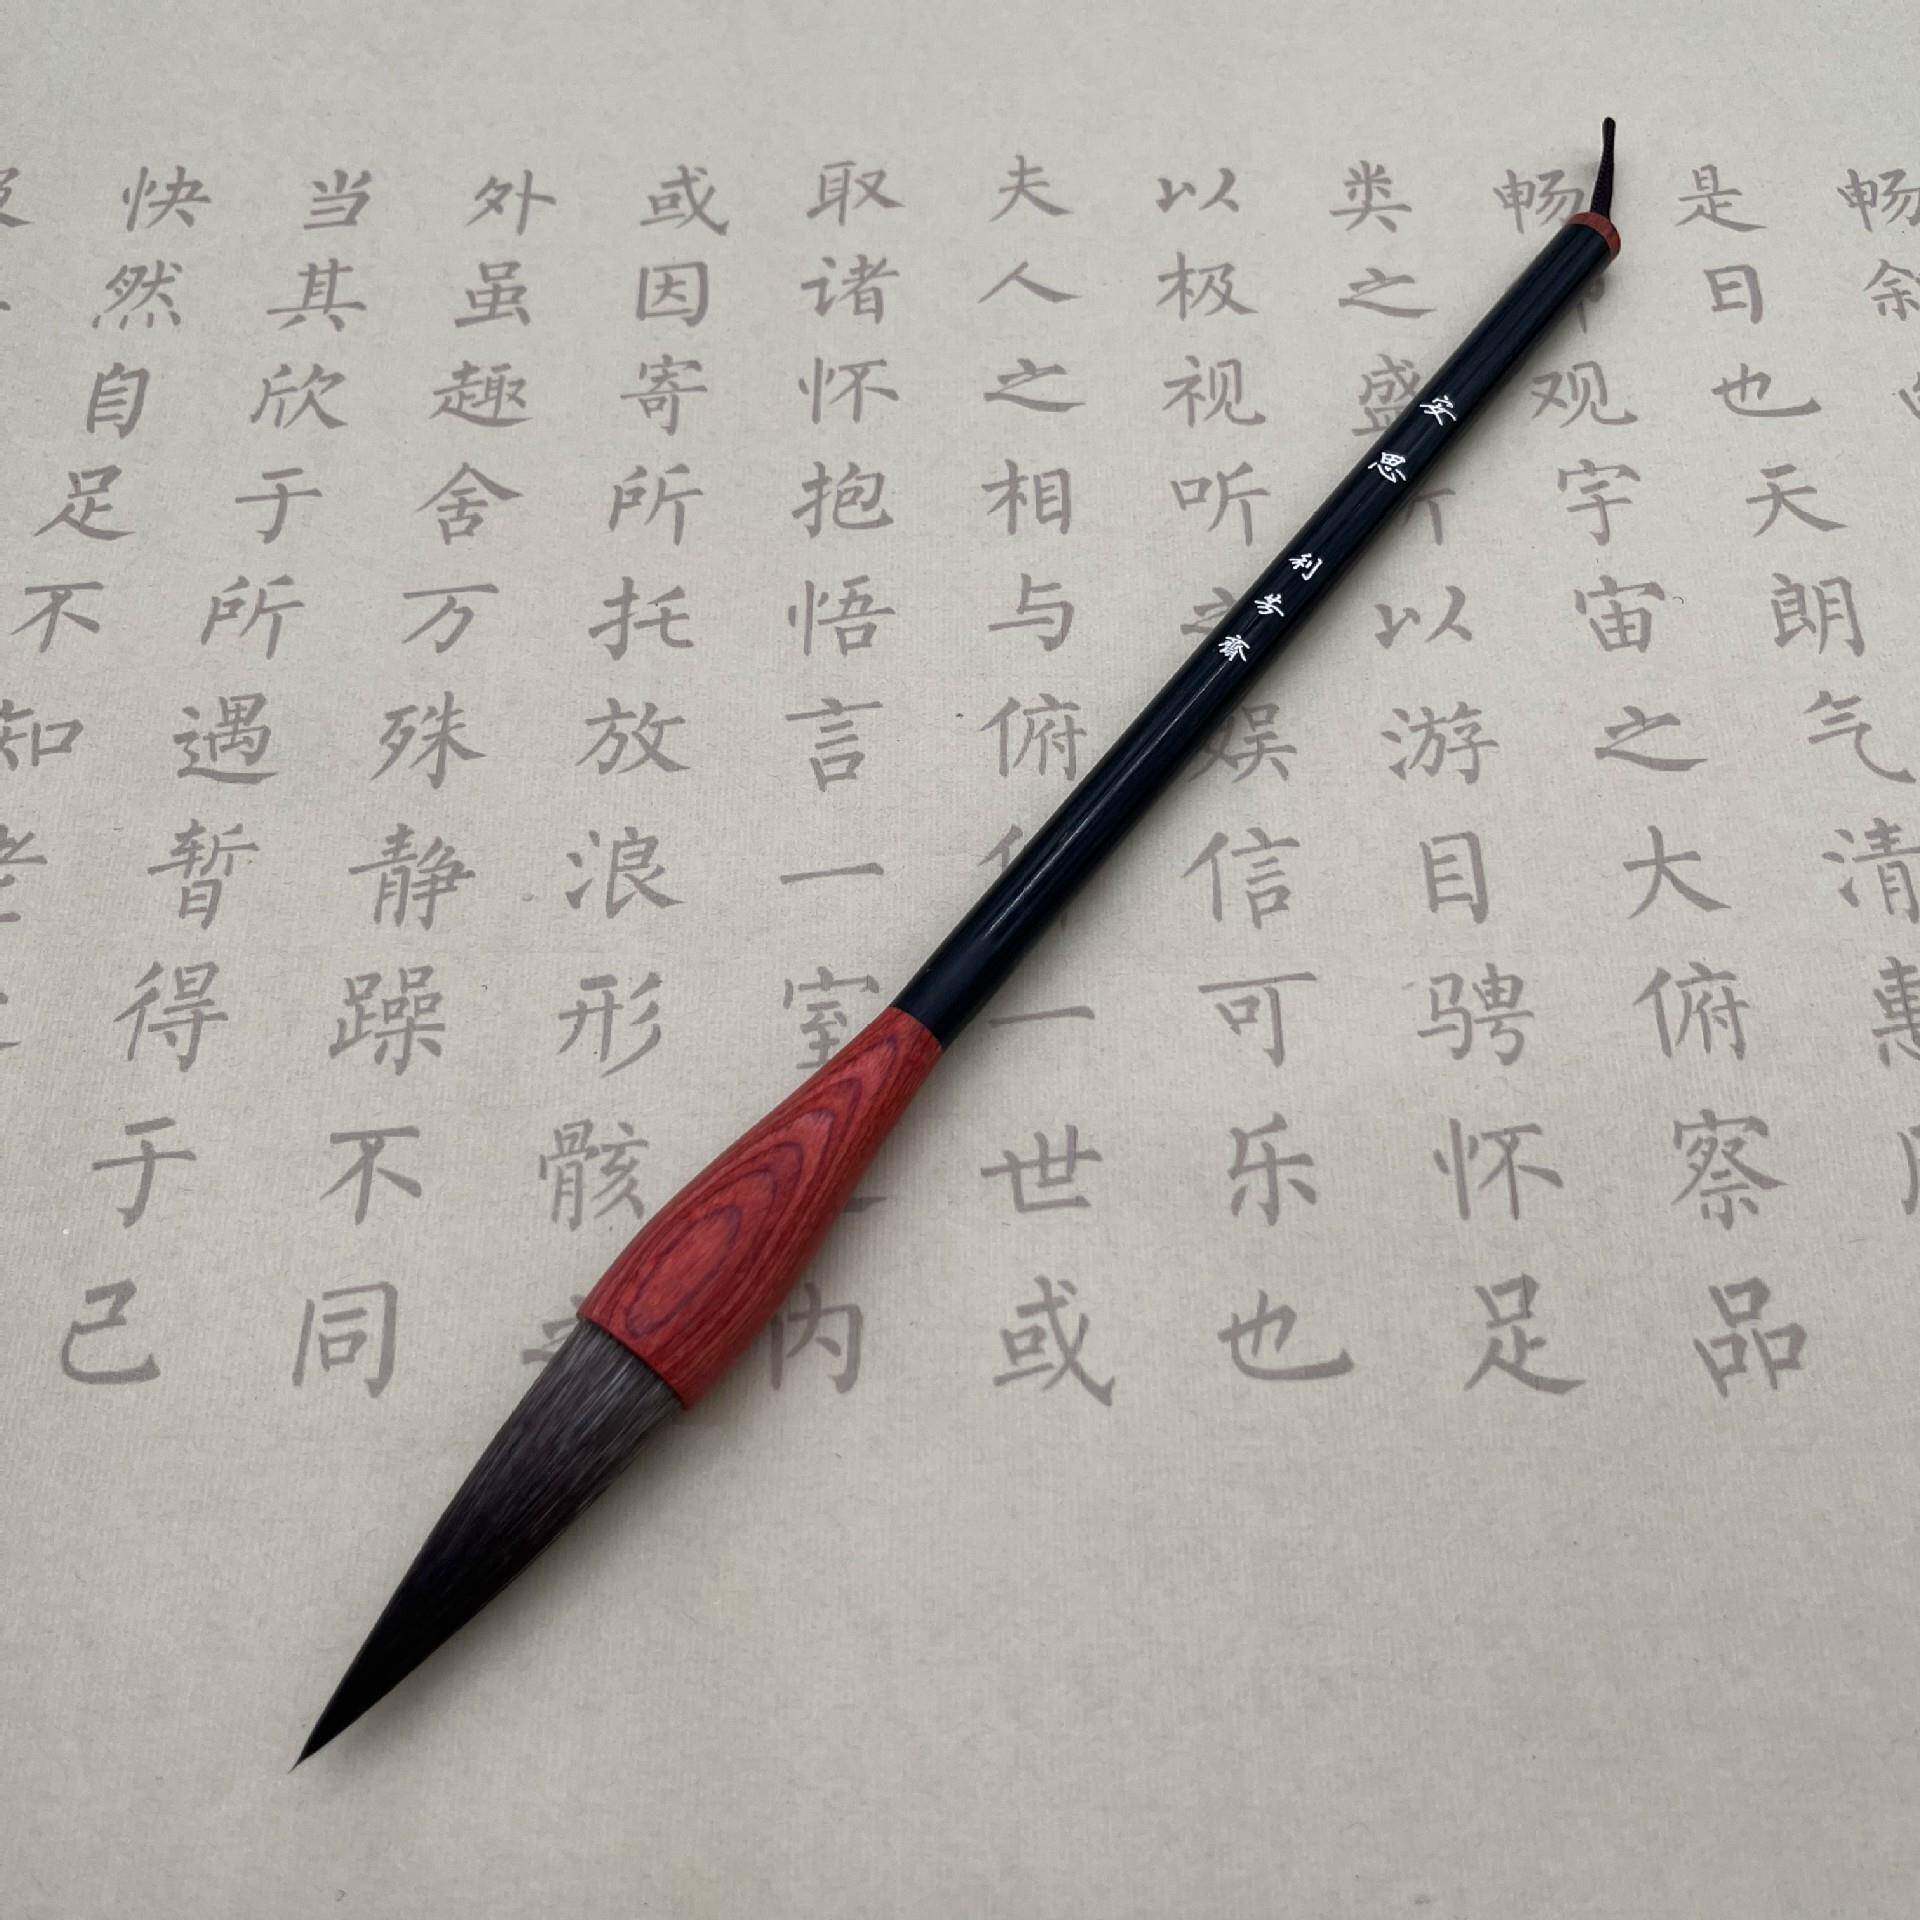 畅
是日也天朗气清惠
畅观宇宙之大俯察品
类之盛所以游目骋怀足
以极视听之娱信可乐也
夫人之相与俯仰一世或
取诸怀抱悟言一室内
或因寄所托放浪形骸之
外虽趣舍万殊静躁不同
当其欣于所遇暂得于己
快然自足不知老
安思
利 齋